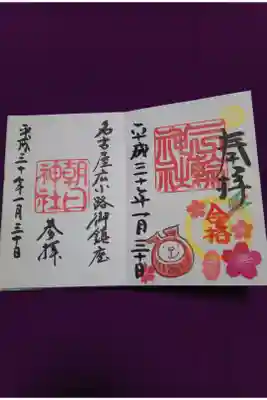 奉拝
合格
三輪神社
平成三十年一月三十日
名古屋広小路御鎮座
朝日神社
参拝
平成三十年一月三十日